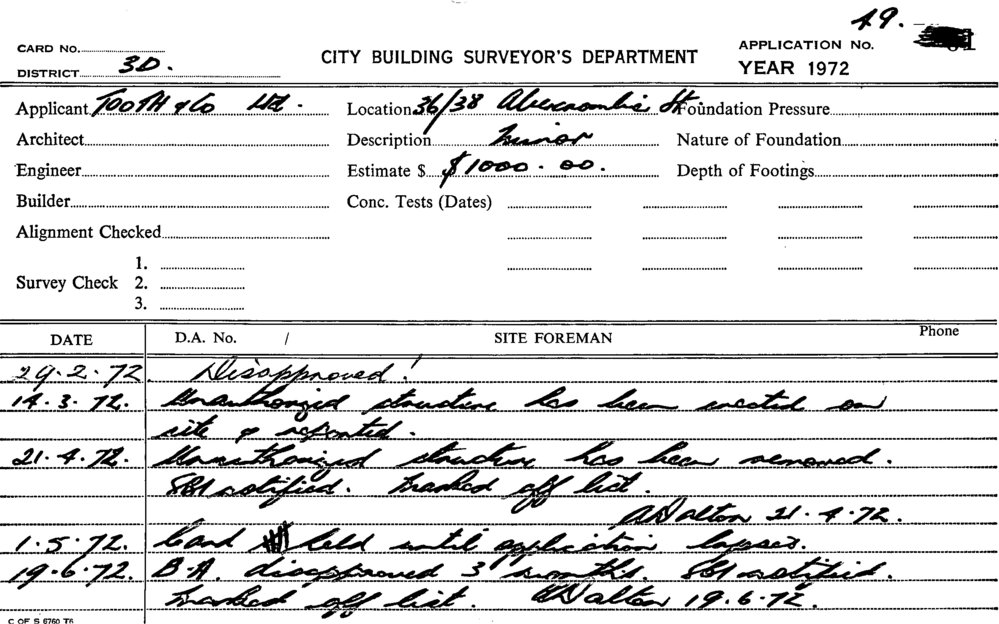 49.
CARD No.
DISTRICT 3D.
CITY BUILDING SURVEYOR'S DEPARTMENT
APPLICATION No. 61
YEAR 1972
Applicant TOOTH & Co Ltd.
Location 36/38 Abercrombie St
Foundation Pressure
Architect
Description Minor
Nature of Foundation
Engineer
Estimate $ $1000.00.
Depth of Footings
Builder
Conc. Tests (Dates)
Alignment Checked
Survey Check 1.
2.
3.
DATE D.A. No. / SITE FOREMAN Phone
29.2.72 Disapproved!
14.3.72. Unauthorized structure has been erected on
site & reported.
21.4.72. Unauthorized structure has been removed.
SBI notified. Marked off list.
ADalton 21.4.72.
1.5.72. Card held until application lapses.
19.6.72. B.A. disapproved 3 months. SBI notified.
Marked off list. ADalton 19.6.72.
C OF S 6760 T6